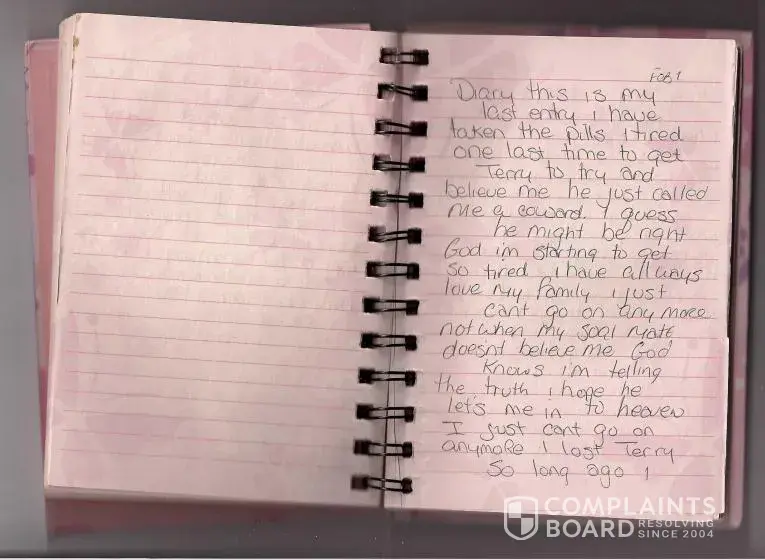 FEB 1
Diary this is my
last entry i have
taken the pills i tired
one last time to get
Terry to try and
believe me he just called
me a coward. I guess
he might be right
God im starting to get
so tired i have allways
love my family i just
cant go on any more
not when my soal mate
doesnt believe me God
knows i'm telling
the truth i hope he
let's me in to heaven
I just cant go on
anymore I lost Terry
so long ago i
COMPLAINTS
BOARD RESOLVING
SINCE 2004